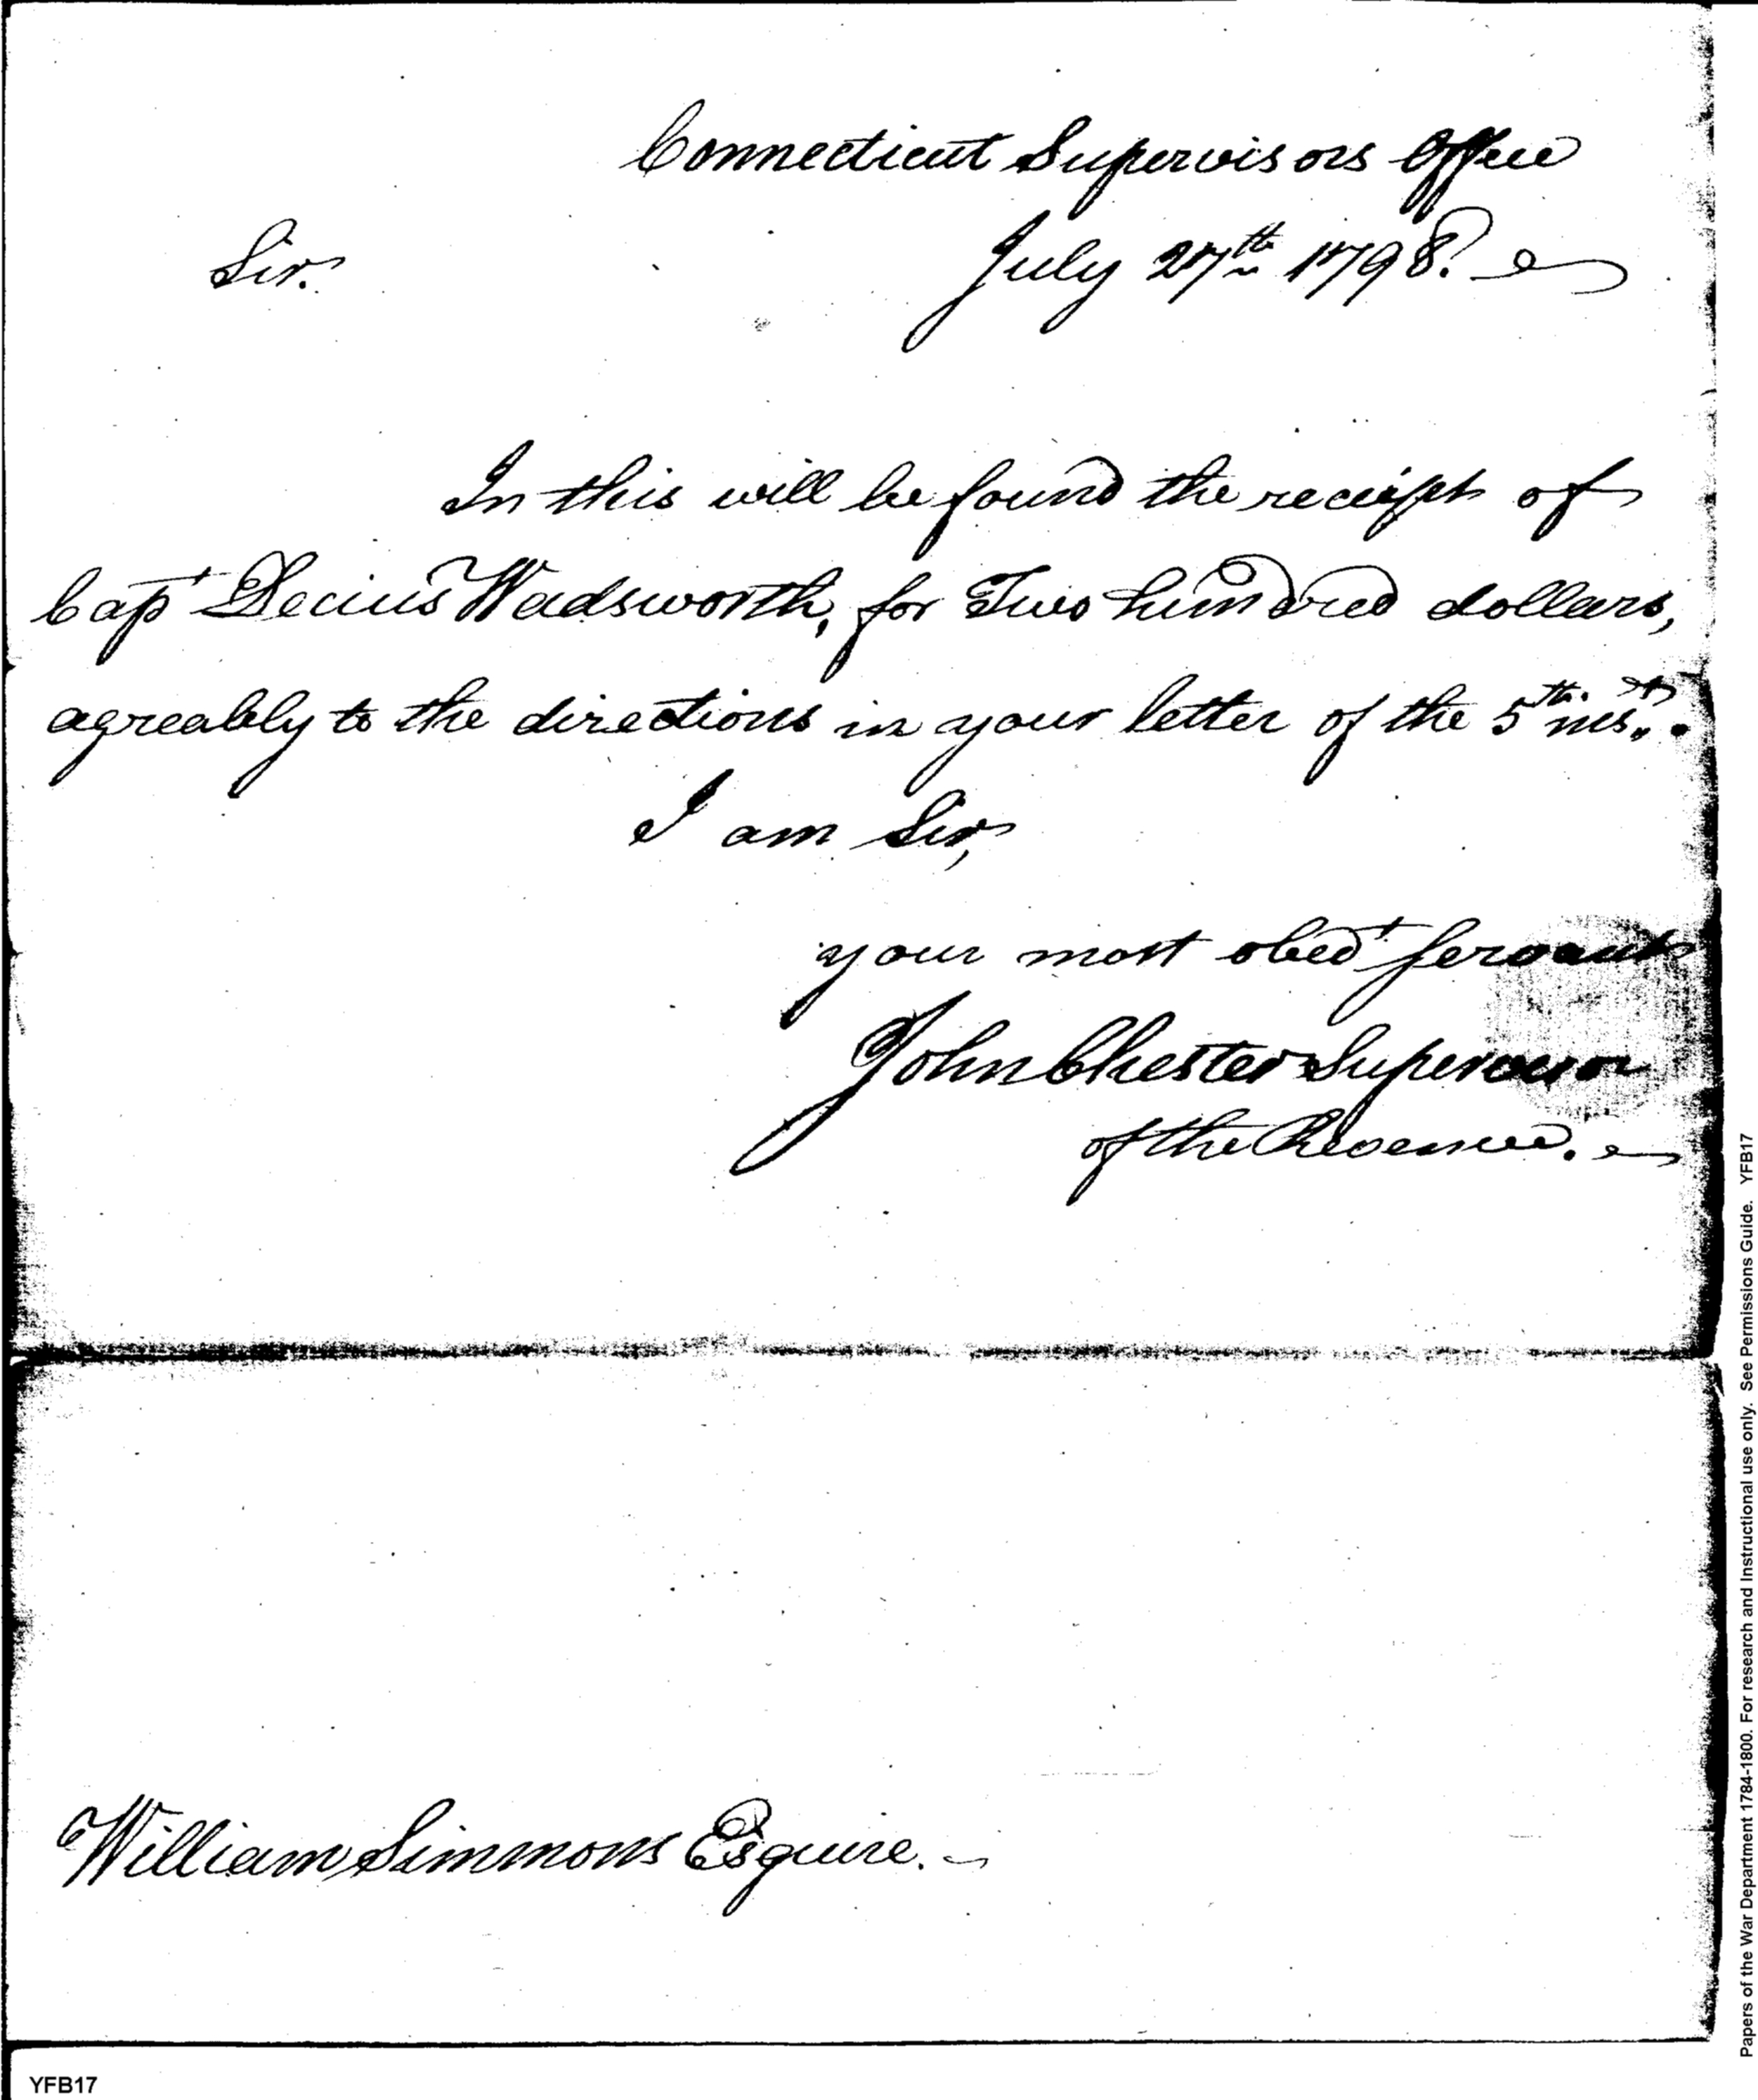 Connecticut Supervisors Office
Sir. July 27th 1798.
In this will be found the receipt of
Capt Decius Wadsworth, for Two hundred dollars,
agreably to the directions in your letter of the 5th. inst.
I am Sir,
your most obedt servant
John Chester Supervisor
of the Revenue.
William Simmons Esquire.
YFB17
Papers of the War Department 1784-1800. For research and Instructional use only. See Permissions Guide. YFB17